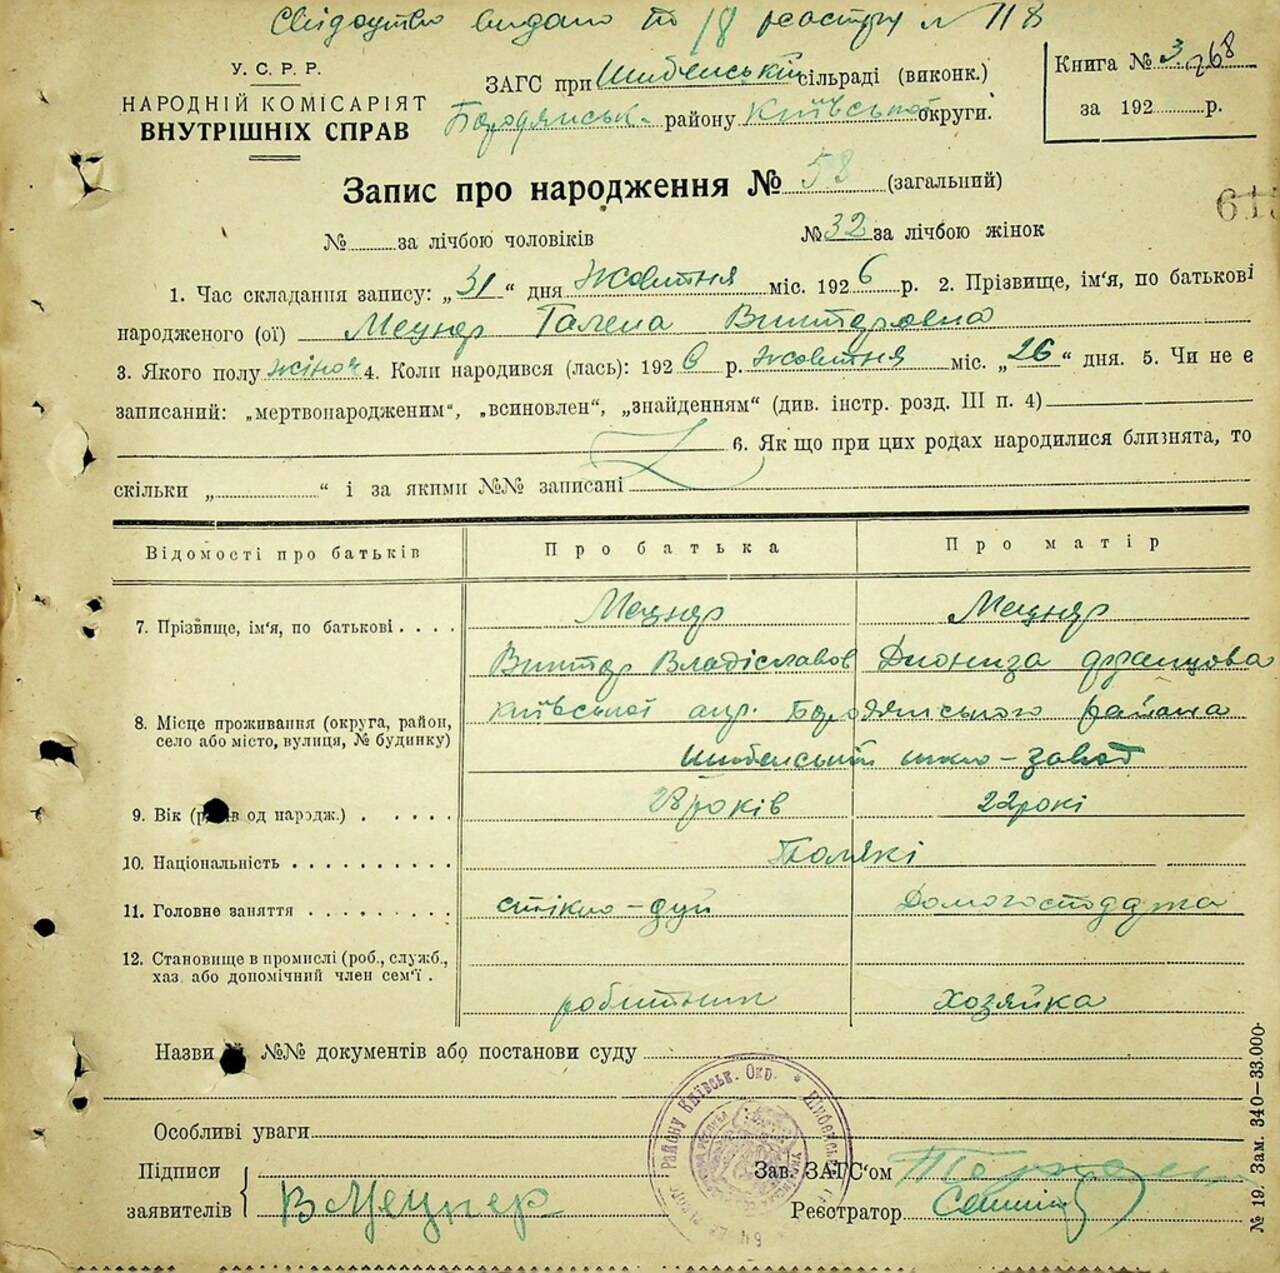 Свідоцтво видано по 18 реєстру № 118
У. С. Р. Р.
НАРОДНІЙ КОМІСАРІЯТ
ВНУТРІШНІХ СПРАВ
ЗАГС при Шибенській сільраді (виконк.)
Бородянськ. району Київської округи.
Книга № 3
268
за 192 р.
Запис про народження № 58 (загальний)
615
№ за лічбою чоловіків № 32 за лічбою жінок
1. Час складання запису: „31“ дня Жовтня міс. 1926 р. 2. Прізвище, ім‘я, по батькові
народженого (ої) Мецнер Галена Виктеровна
3. Якого полу жіноч 4. Коли народився (лась): 1926 р. Жовтня міс. „26“ дня. 5. Чи не є
записаний: „мертвонародженим“, „всиновлен“, „знайденням“ (див. інстр. розд. III п. 4)
6. Як що при цих родах народилися близнята, то
скільки „ “ і за якими №№ записані
Відомості про батьків Про батька Про матір
7. Прізвище, ім‘я, по батькові . . . . Мецнер Мецнер
Виктер Владіславов Диониза Францова
8. Місце проживання (округа, район, Київської окр. Бородянського района
село або місто, вулиця, № будинку)
Шибенській шкло-завод
9. Вік (років од народж.) . . . . . 28 років 22 рокі
10. Національність . . . . . . . . . Полякі
11. Головне заняття . . . . . . . . . стікло-дуй Домогосподарка
12. Становище в промислі (роб., служб.,
хаз. або допомічний член сем‘ї .
робитник хозяйка
Назви й №№ документів або постанови суду
Особливі уваги
Підписи
заявителів
В Мецнер
Зав. ЗАГС‘ом
Реєстратор
району Київськ. Окр. * Шибенськ
№ 19. Зам. 340—33.000.